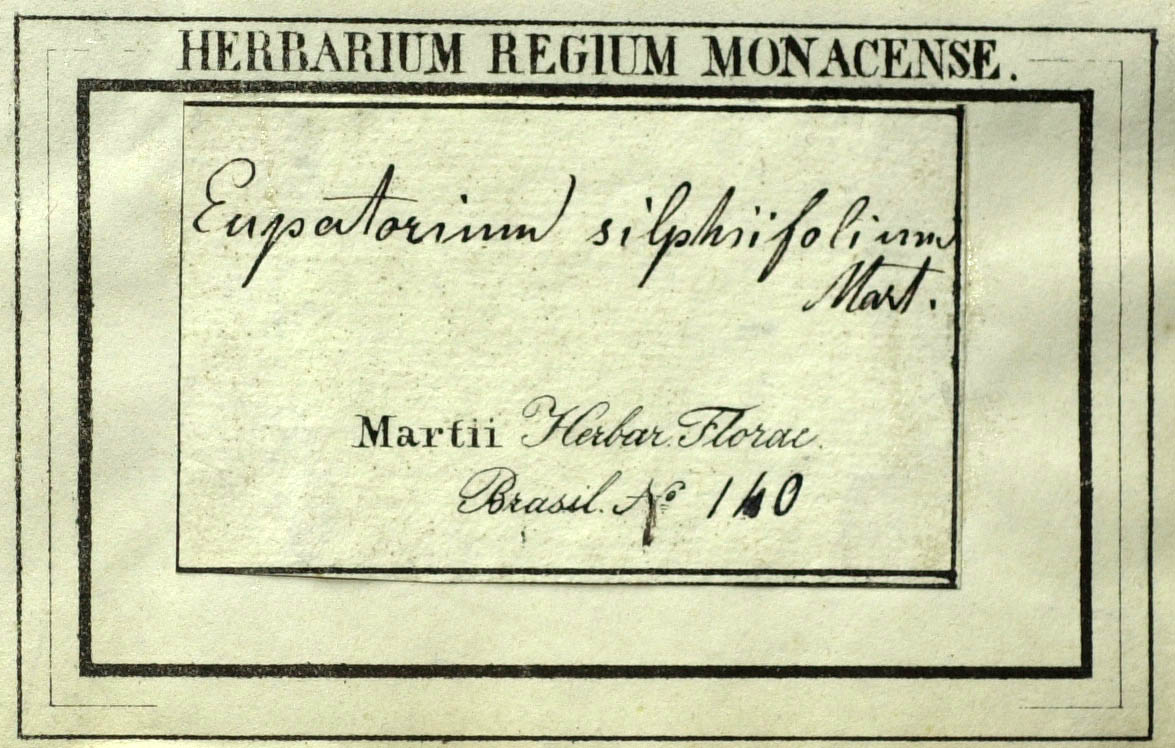 HERBARIUM REGIUM MONACENSE.
Eupatorium silphiifolium
Mart.
Martii Herbar. Florae
Brasil. No 140